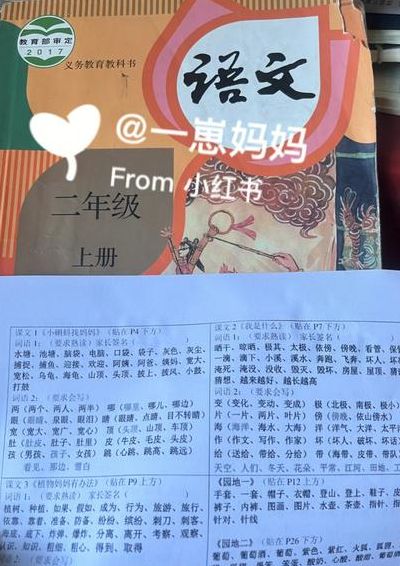 教育部审定
2017
义务教育教科书
语文
@一崽妈妈
From 小红书
二年级
上册
课文 1《小蝌蚪找妈妈》（贴在 P4 下方）
词语 1：（要求熟读）家长签名（ ）
水塘、池塘、脑袋、电脑、口袋、袋子、灰色、灰尘、
捕捉、捕鱼、迎接、欢迎、阿姨、阿爸、姨妈、宽大、
宽松、乌龟、海龟、山顶、头顶、披上、披风、小鼓、
打鼓
词语 2：（要求会写）
两（两个、两人、两半）哪（哪里、哪儿、哪边）
宽（宽大、宽广、宽心）顶（头顶、山顶、车顶）
肚（肚皮、肚子、肚里）皮（牛皮、毛皮、头皮）
孩（男孩、孩子、女孩）跳（心跳、跳高、跳远）
看见、那边、雪白
课文 3《植物妈妈有办法》（贴在 P9 上方）
词语 1：（要求熟读）家长签名（ ）
植树、种植、如果、假如、成为、行为、旅游、旅行、
依靠、靠着、准备、防备、纷纷、缤纷、刺刀、刺客、
海底、底下、炸弹、爆炸、分离、离开、考察、观察、
认识、知识、粗细、粗心、得到、取得
课文 2《我是什么》（贴在 P7 下方）
词语 1：（要求熟读）家长签名（
晒干、晾晒、极其、太极、依傍、傍晚、看管、保管
一滴、滴下、小溪、溪水、奔跑、飞奔、坏人、坏
淹死、淹没、没收、毁灭、毁坏、房屋、屋顶、猜
猜想、越来越好、越长越高
词语 2：（要求会写）
变（变化、变动、变成）极（北极、南极、极小
片（一片、两片、叶片）傍（傍晚、依山傍水）
海（海洋、海水、大海）洋（洋气、大洋、太平洋
作（作文、写作、作家）坏（坏人、破坏、坏话
给（送给、带给、分给）带（海带、皮带、带队
天空、人们、冬天、花朵、平常、江河、田地、工
《园地一》（贴在 P12 上方）
手套、一套、帽子、衣帽、登山、登上、鞋子、皮
裤子、内裤、图画、图片、水壶、茶壶、指针、指
针对、针线
《园地二》（贴在 P26 下方）